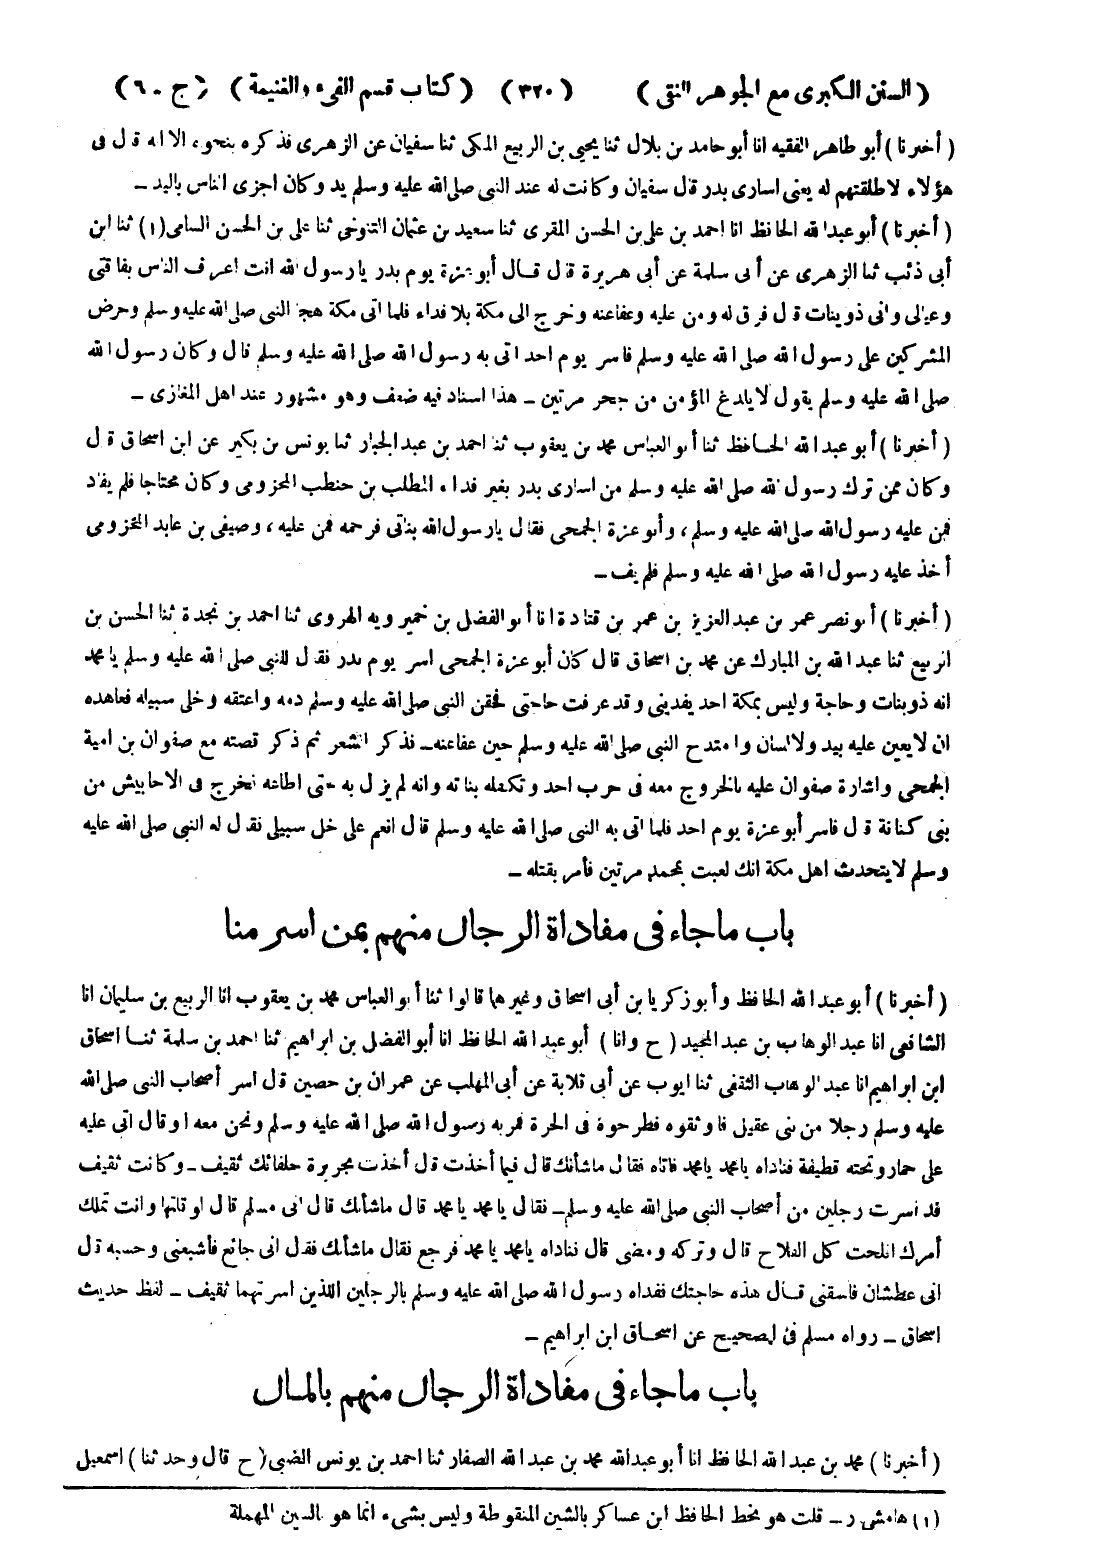 ( السنن الكبرى مع الجوهر النقى ) ( ٣٢٠ ) ( كتاب قسم الفىء والغنيمة ) ( ج - ٦ )
( أخبرنا ) أبو طاهر الفقيه انا أبو حامد بن بلال ثنا يحيى بن الربيع المكى ثنا سفيان عن الزهرى فذكره بنحوه الا انه قال فى
هؤلاء لاطلقتهم له يعنى اسارى بدر قال سفيان وكانت له عند النبى صلى الله عليه وسلم يد وكان اجزى الناس باليد -
( أخبرنا ) أبو عبد الله الحافظ انا احمد بن على بن الحسن المقرى ثنا سعيد بن عثمان التنوخى ثنا على بن الحسن السامى (١) ثنا ابن
أبى ذئب ثنا الزهرى عن أبى سلمة عن أبى هريرة قال قال أبو عزة يوم بدر يا رسول الله انت اعرف الناس بفاقتى
وعيالى وانى ذو بنات قال فرق له ومن عليه وعفا عنه وخرج الى مكة بلا فداء فلما اتى مكة هجا النبى صلى الله عليه وسلم وحرض
المشركين على رسول الله صلى الله عليه وسلم فاسر يوم احد اتى به رسول الله صلى الله عليه وسلم قال وكان رسول الله
صلى الله عليه وسلم يقول لا يلدغ المؤمن من جحر مرتين - هذا اسناد فيه ضعف وهو مشهور عند اهل المغازى -
( أخبرنا ) أبو عبد الله الحافظ ثنا أبو العباس محمد بن يعقوب ثنا احمد بن عبد الجبار ثنا يونس بن بكير عن ابن اسحاق قال
وكان ممن ترك رسول الله صلى الله عليه وسلم من اسارى بدر بغير فداء المطلب بن حنطب المخزومى وكان محتاجا فلم يفاد
فمن عليه رسول الله صلى الله عليه وسلم ، وأبو عزة الجمحى فقال يا رسول الله بناتى فرحمه فمن عليه ، وصيفى بن عابد المخزومى
أخذ عليه رسول الله صلى الله عليه وسلم فلم يف -
( أخبرنا ) أبو نصر عمر بن عبد العزيز بن عمر بن قتادة انا أبو الفضل بن خميرويه الهروى ثنا احمد بن نجدة ثنا الحسن بن
الربيع ثنا عبد الله بن المبارك عن محمد بن اسحاق قال كان أبو عزة الجمحى اسر يوم بدر فقال للنبى صلى الله عليه وسلم يا محمد
انه ذو بنات وحاجة وليس بمكة احد يفدينى وقد عرفت حاجتى فحقن النبى صلى الله عليه وسلم دمه واعتقه وخلى سبيله فعاهده
ان لا يعين عليه بيد ولا لسان وامتدح النبى صلى الله عليه وسلم حين عفا عنه - فذكر الشعر ثم ذكر قصته مع صفوان بن امية
الجمحى واشارة صفوان عليه بالخروج معه فى حرب احد وتكفله بناته وانه لم يزل به حتى اطاعه فخرج فى الاحابيش من
بنى كنانة قال فاسر أبو عزة يوم احد فلما اتى به النبى صلى الله عليه وسلم قال انعم على خل سبيلى فقال له النبى صلى الله عليه
وسلم لا يتحدث اهل مكة انك لعبت بمحمد مرتين فأمر بقتله -
باب ماجاء فى مفاداة الرجال منهم بمن اسر منا
( أخبرنا ) أبو عبد الله الحافظ وأبو زكريا بن أبى اسحاق وغيرهما قالوا ثنا أبو العباس محمد بن يعقوب انا الربيع بن سليمان انا
الشافعى انا عبد الوهاب بن عبد المجيد ( ح وانا ) أبو عبد الله الحافظ انا أبو الفضل بن ابراهيم ثنا احمد بن سلمة ثنا اسحاق
ابن ابراهيم انا عبد الوهاب الثقفى ثنا ايوب عن أبى قلابة عن أبى المهلب عن عمران بن حصين قال اسر أصحاب النبى صلى الله
عليه وسلم رجلا من بنى عقيل فاوثقوه فطرحوه فى الحرة فمر به رسول الله صلى الله عليه وسلم ونحن معه او قال اتى عليه
على حمار وتحته قطيفة فناداه يا محمد يا محمد فاتاه فقال ما شأنك قال فيما أخذت قال أخذت بجريرة حلفائك ثقيف - وكانت ثقيف
قد اسرت رجلين من أصحاب النبى صلى الله عليه وسلم - فقال يا محمد يا محمد قال ماشأنك قال انى مسلم قال لو قلتها وانت تملك
أمرك افلحت كل الفلاح قال وتركه ومضى قال فناداه يا محمد يا محمد فرجع فقال ماشأنك فقال انى جائع فأشبعنى وحسبه قال
انى عطشان فاسقنى قال هذه حاجتك ففداه رسول الله صلى الله عليه وسلم بالرجلين اللذين اسرتهما ثقيف - لفظ حديث
اسحاق - رواه مسلم فى الصحيح عن اسحاق ابن ابراهيم -
باب ماجاء فى مفاداة الرجال منهم بالمال
( أخبرنا ) محمد بن عبد الله الحافظ انا أبو عبد الله محمد بن عبد الله الصفار ثنا احمد بن يونس الضبى ( ح قال وحدثنا ) اسمعيل
(١) هامش ر - قلت هو بخط الحافظ ابن عساكر بالشين المنقوطة وليس بشىء انما هو بالسين المهملة